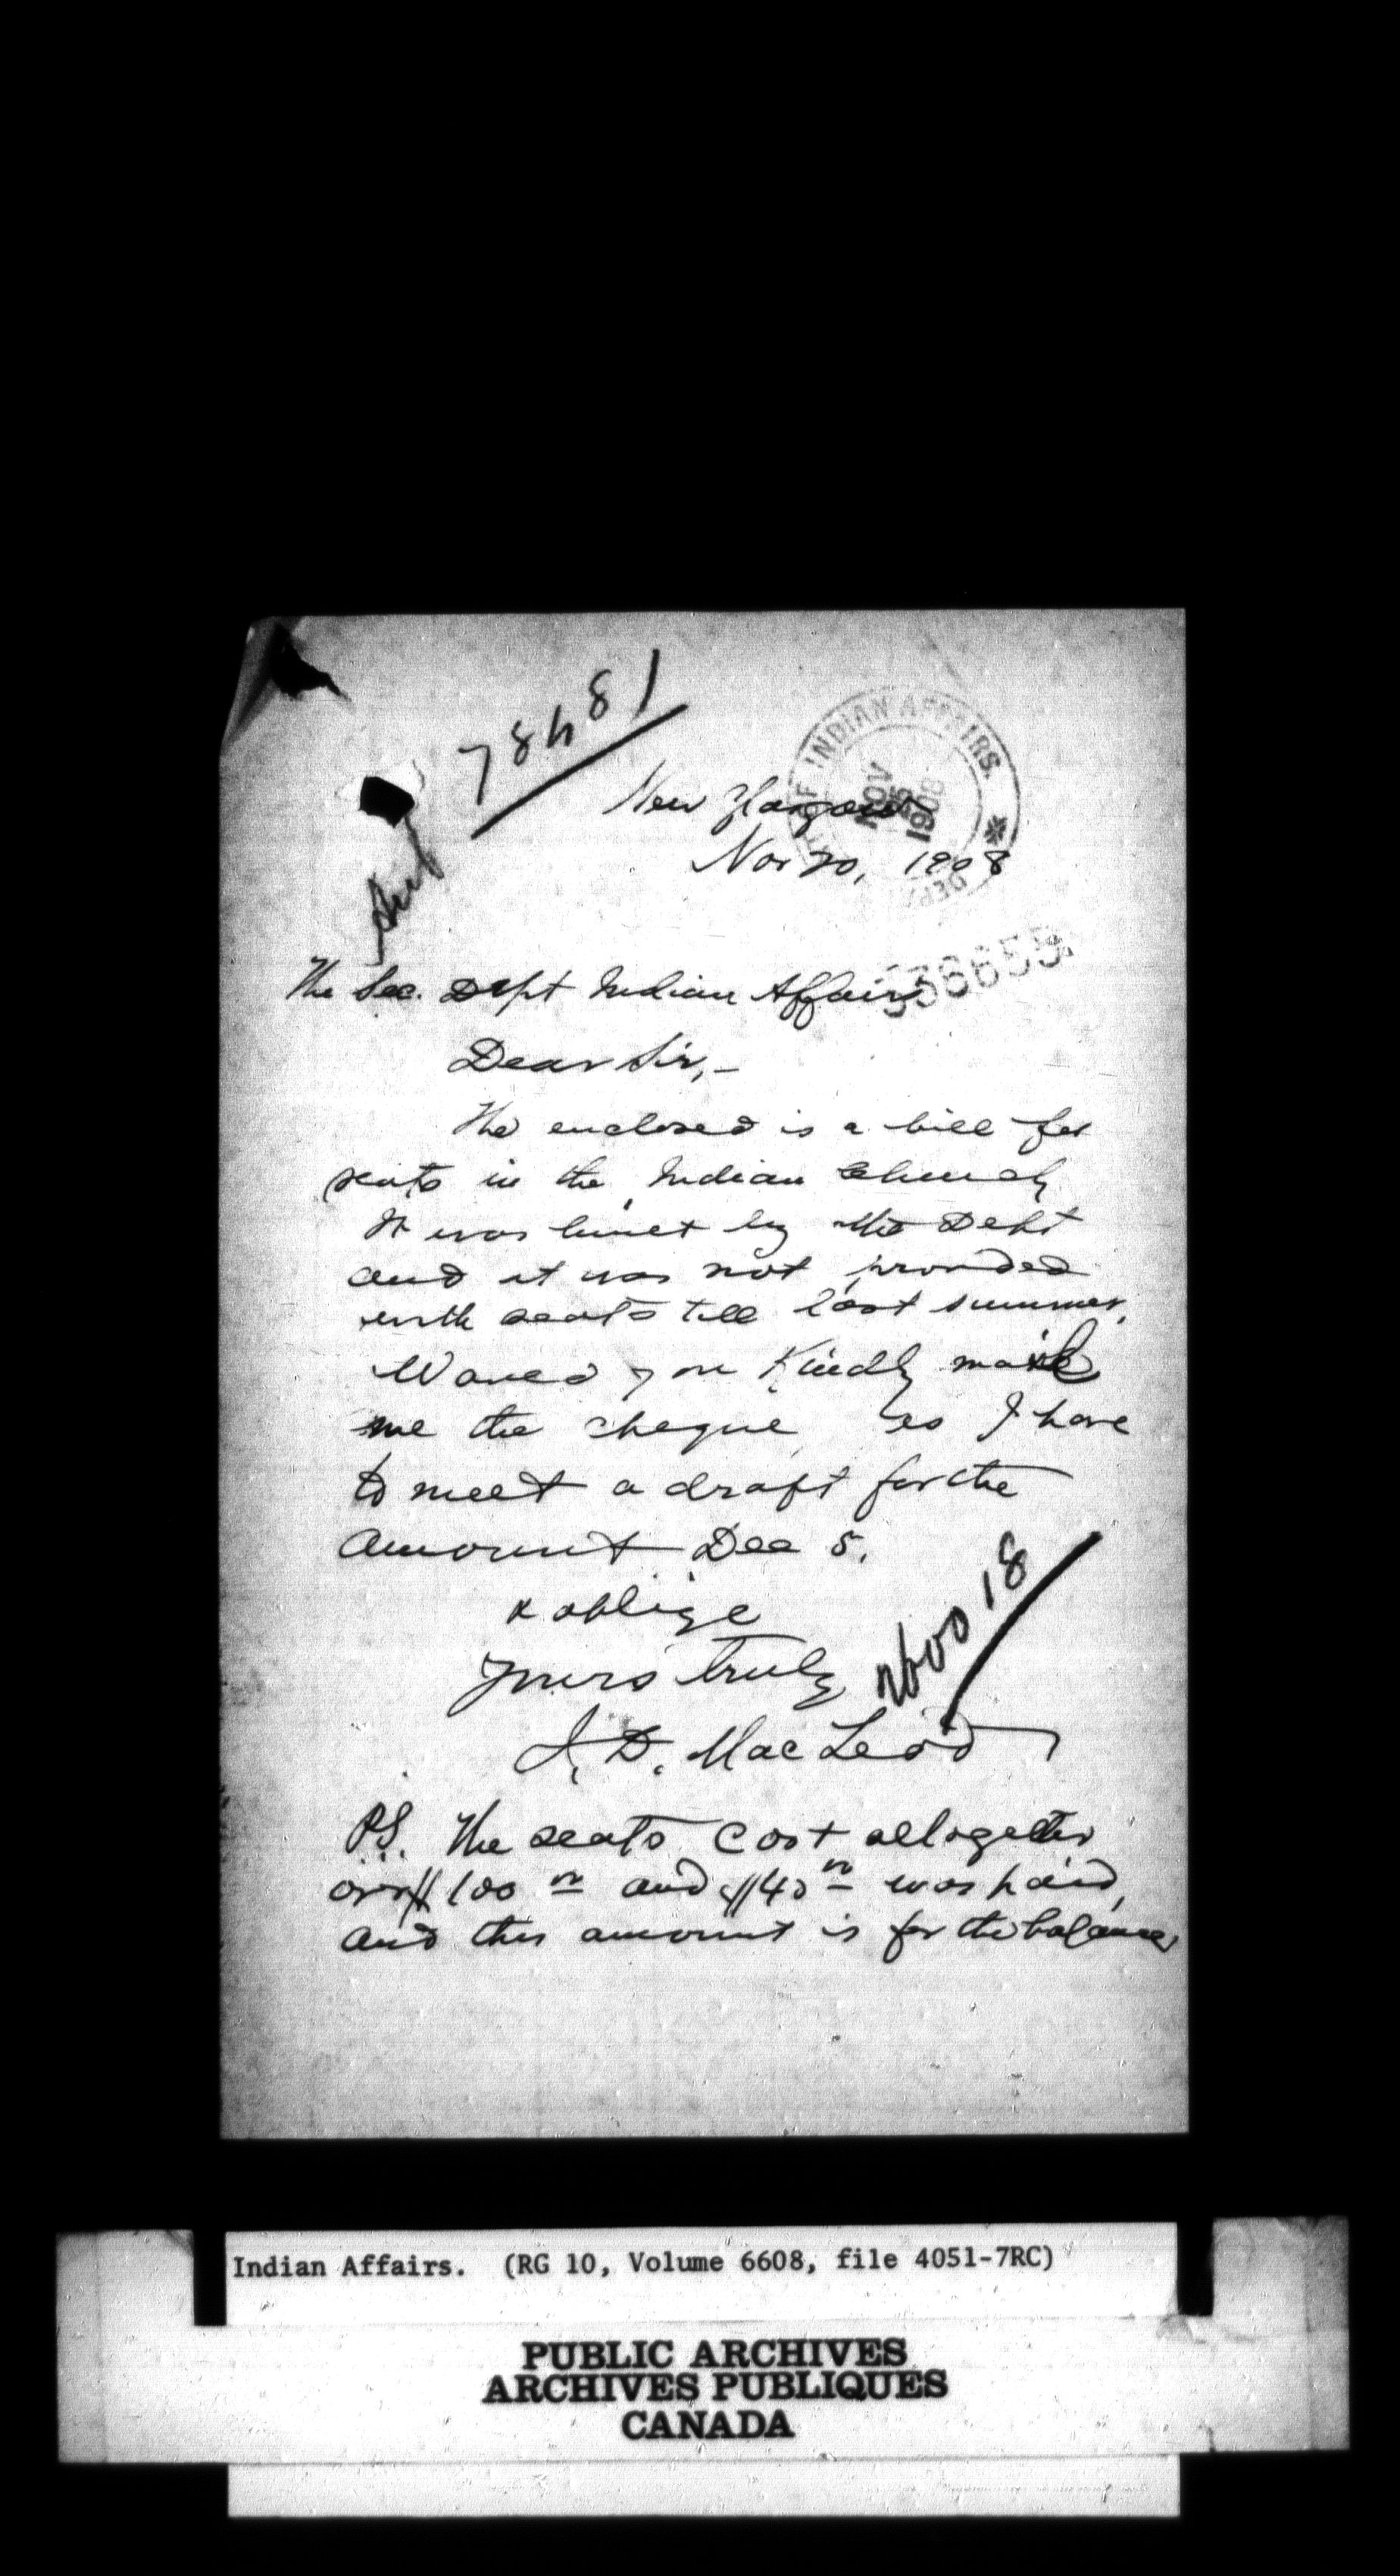 78481
DEPT. OF INDIAN AFFAIRS.
NOV 25 1908
New Glasgow
Nov 20, 1908
336655
The Sec. Dept Indian Affairs
Dear Sir,—
The enclosed is a bill for
seats in the Indian Church
It was built by the Dept
and it was not provided
with seats till last summer.
Would you Kindly mail
me the cheque, as I have
to meet a draft for the
amount Dec 5.
& oblige
Yours truly
J. D. MacLeod
P.S. The seats cost altogether
over $100 00 and $40 00 was paid,
and this amount is for the balance,
Indian Affairs. (RG 10, Volume 6608, file 4051-7RC)
PUBLIC ARCHIVES
ARCHIVES PUBLIQUES
CANADA